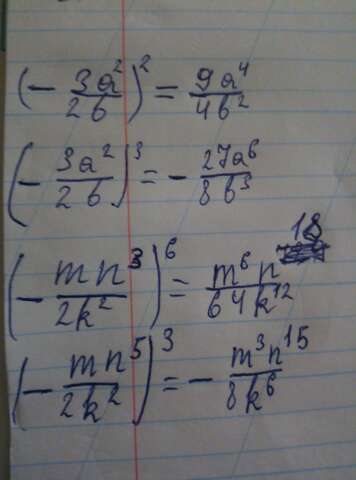 (- 3a²/2b)² = 9a⁴/4b²
(- 3a²/2b)³ = - 27a⁶/8b³
(- mn³/2k²)⁶ = m⁶n¹⁸/64k¹²
(- mn⁵/2k²)³ = - m³n¹⁵/8k⁶